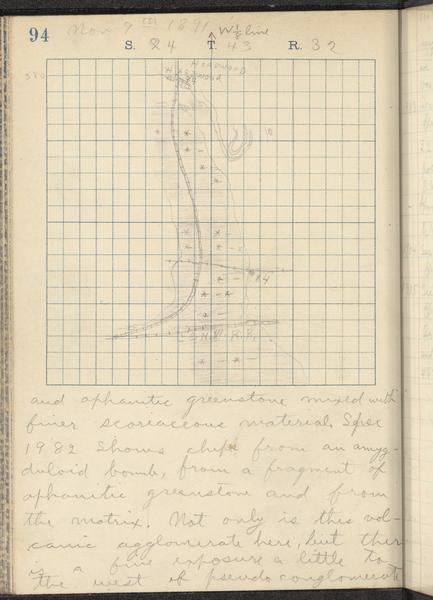 94 Nov 9th 1891 W ½ line
S. 24 T. 43 R. 32
Hardwood
Hardwood
10
P. 4
C. & N.W. R.R.
and aphanitic greenstone mixed with
finer scoriaceous material. Spec
1982 shows chips from an amyg-
duloid bomb, from a fragment of
aphanitic greenstone and from
the matrix. Not only is this vol-
canic agglomerate here, but ther
is a fine exposure a little to
the west of pseudo conglomerate